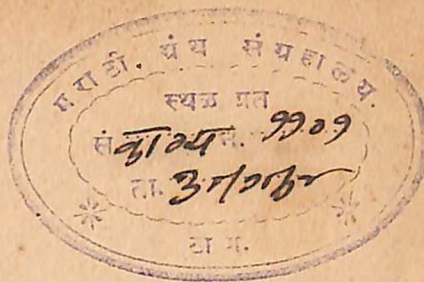 मराठी ग्रंथ संग्रहालय.
स्थळ प्रत
सं काव्य न. ११०१
ता.
ठाणे.